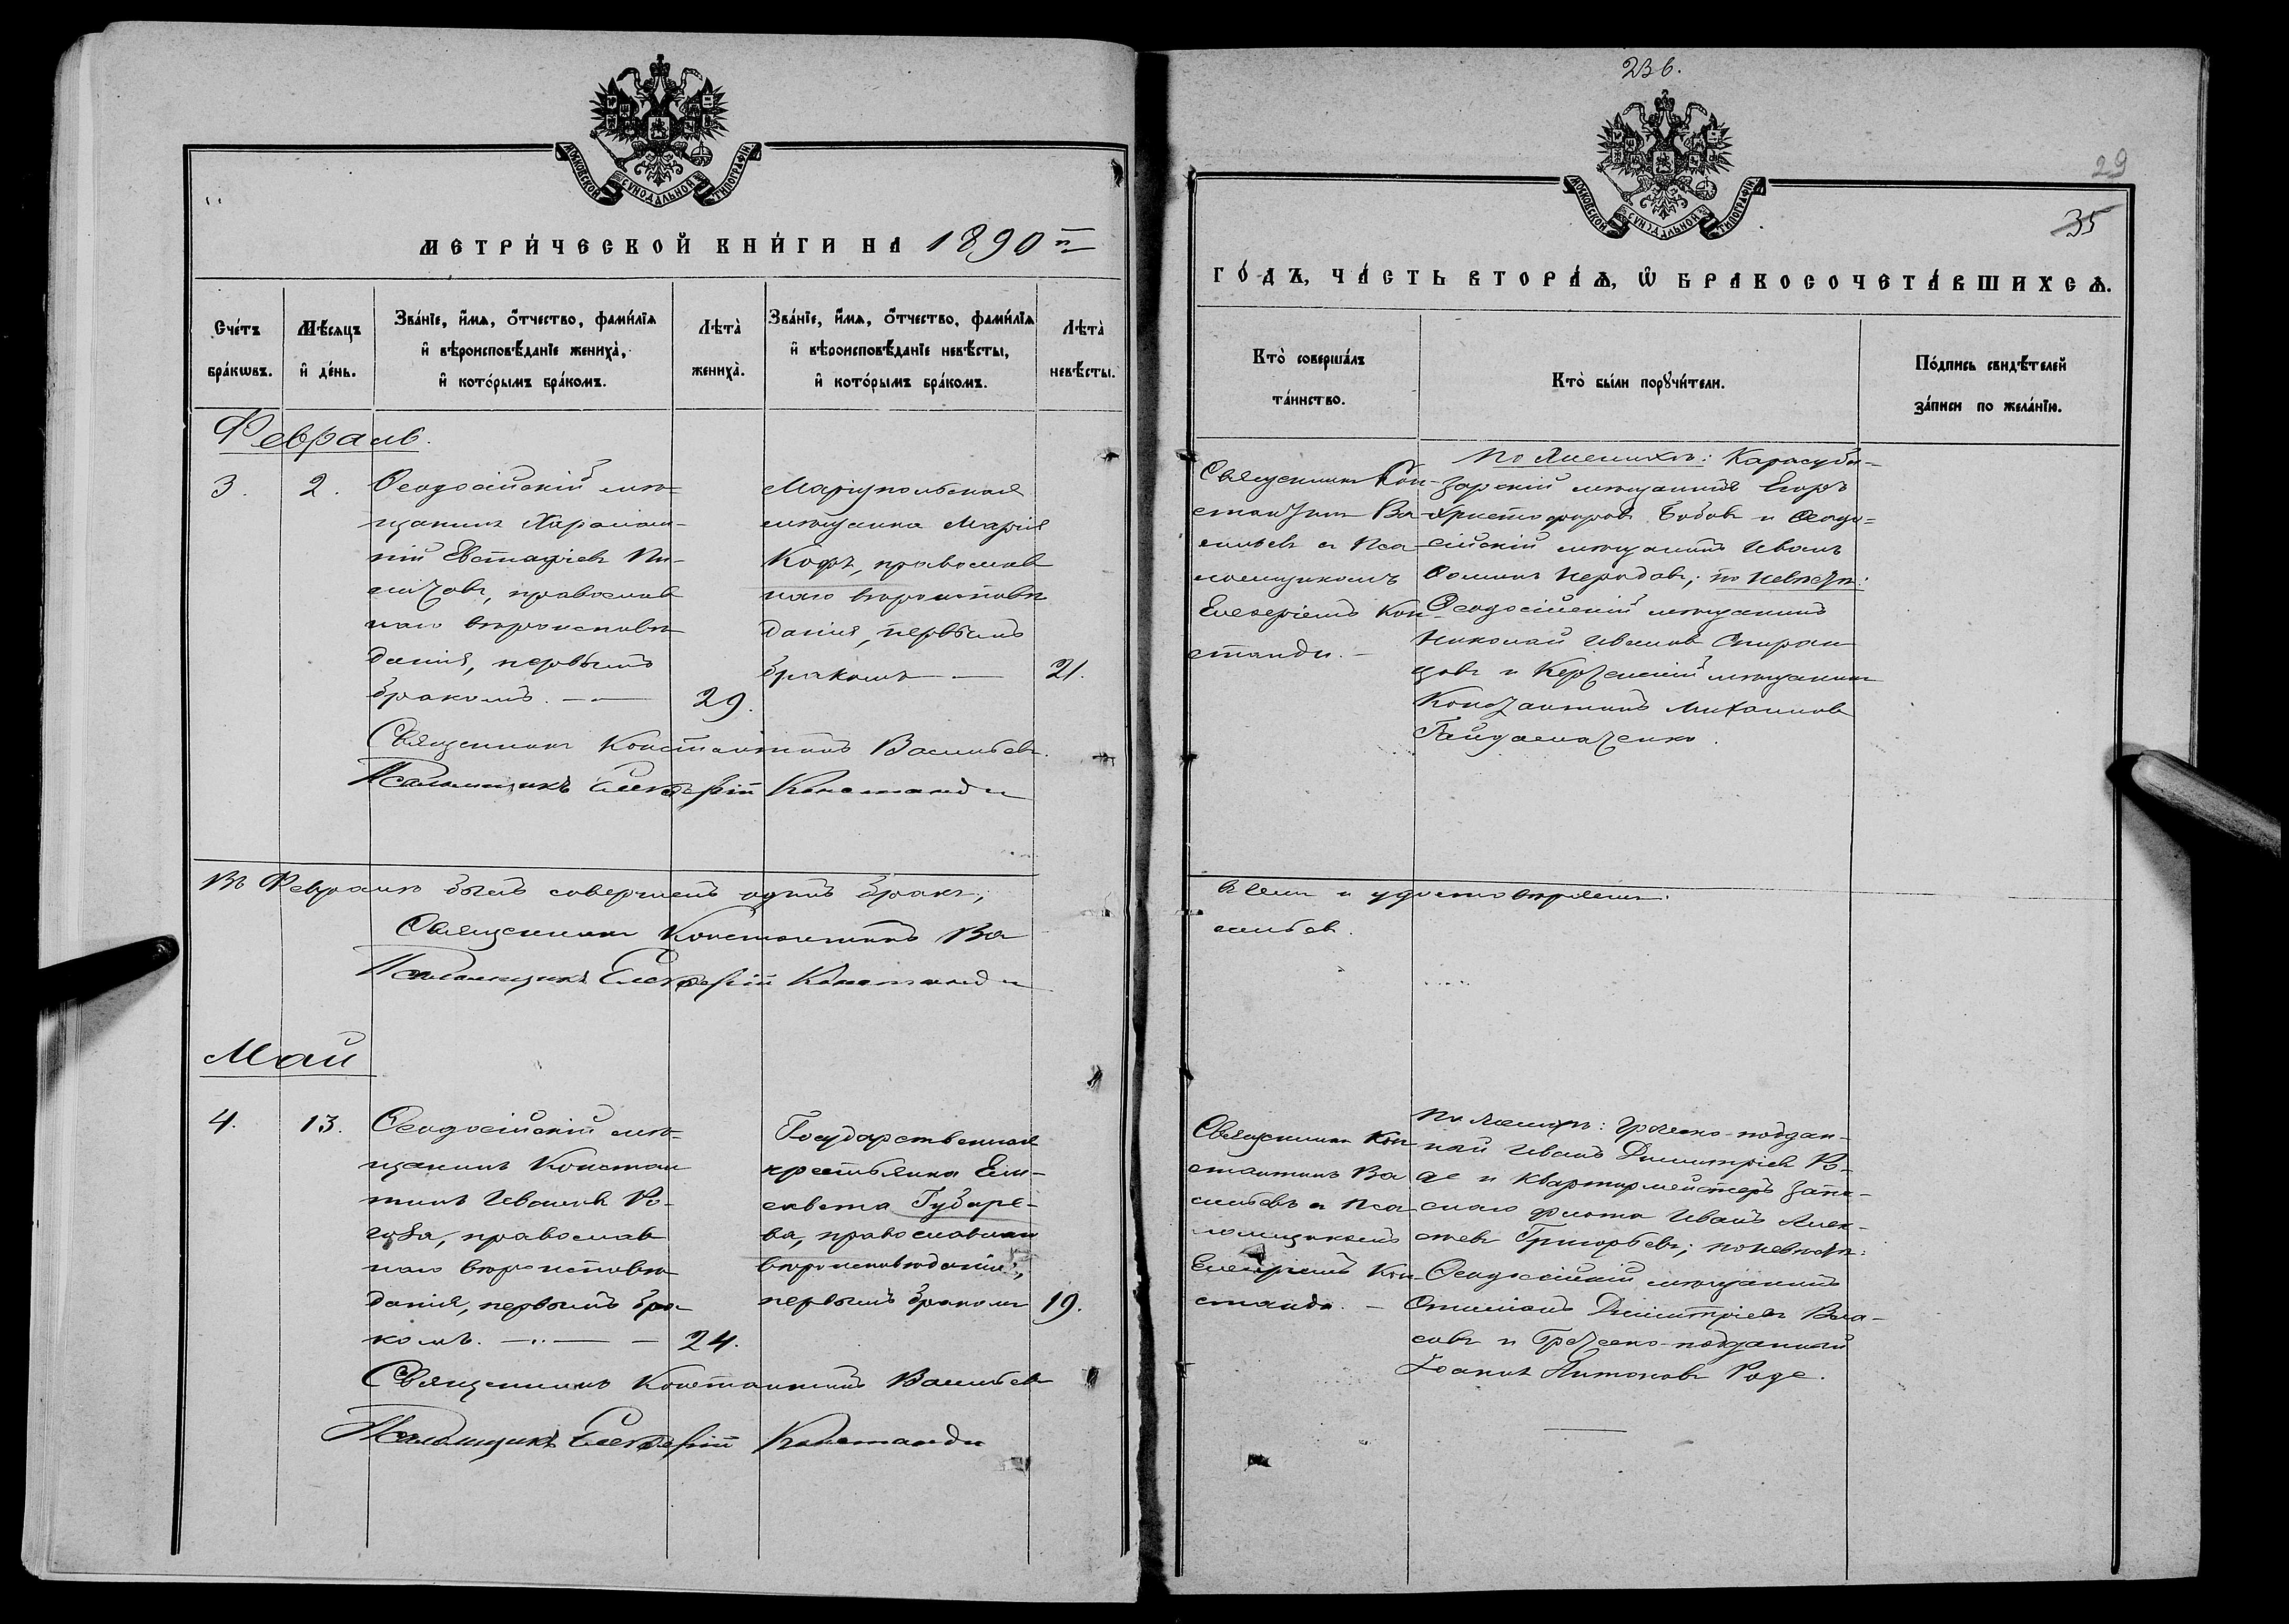 МОСКОВСКОЙ СУНОДАЛЬНОЙ ТИПОГРАФІИ
МЕТРИ́ЧЕСКОЙ КНИ́ГИ НА 1890 й
Сче́тъ бра́кωвъ.
Мѣ́сяцъ и҆ де́нь.
Зва́нїе, и҆́мѧ, ѻ҆́тчество, фами́лїѧ
и҆ вѣроисповѣ́данїе жениха̀,
и҆ кото́рымъ бра́комъ.
Лѣта̀ жениха̀.
Зва́нїе, и҆́мѧ, ѻ҆́тчество, фами́лїѧ
и҆ вѣроисповѣ́данїе невѣ́сты,
и҆ кото́рымъ бра́комъ.
Лѣта̀ невѣ́сты.
Февраль.
3.
2.
Ѳеодосійскій мѣ-
щанинъ Харалам-
пій Евстафіевъ
православ
наго вѣроисповѣ
данія, первымъ
бракомъ.
29.
Маріупольская
мѣщанка Марія
Кофъ, православ
наго вѣроисповѣ
данія, первымъ
бракомъ
21.
Священникъ Константинъ Васильевъ.
Псаломщикъ Елевферій Константи
Въ Февралѣ былъ совершенъ одинъ бракъ,
Священникъ Константинъ Ва
Псаломщикъ Елевферій Константи
Май
4.
13.
Ѳеодосійскій мѣ-
щанинъ Констан
тинъ Ивановъ Ро-
православ
наго вѣроисповѣ
данія, первымъ бра-
комъ.
24.
Государственная
крестьянка Ели-
савета Губаре-
ва, православнаго
вѣроисповѣданія,
первымъ бракомъ
19.
Священникъ Константинъ Васильевъ
Псаломщикъ Елевферій Константи
236.
29
35
МОСКОВСКОЙ СУНОДАЛЬНОЙ ТИПОГРАФІИ
ГО́ДЪ, ЧА́СТЬ ВТОРА́Ѧ, Ѽ БРАКОСОЧЕТА́ВШИХСѦ.
Кто̀ соверша́лъ
та́инство.
Кто̀ бы́ли порꙋчи́тели.
По́дпись свидѣ́телей
за́писи по жела́нїю.
Священникъ Кон-
стантинъ Ва-
сильевъ съ Пса-
ломщикомъ
Елевферіемъ Кон-
станди.
По женихѣ: Карасуба-
зарскій мѣщанинъ Егоръ
Христофоровъ Бобовъ и Ѳеодо-
сійскій мѣщанинъ Иванъ
по невѣстѣ:
Ѳеодосійскій мѣщанинъ
Николай Ивановъ Спиран
цовъ и Керченскій мѣщанинъ
Константинъ Михаиловъ
Гайдамаченко.
въ чемъ и удостовѣряемъ.
сильевъ.
Священникъ Кон-
стантинъ Ва
сильевъ съ Пса-
ломщикомъ
Елевферіемъ Кон-
станди.
По женихѣ: Греческо-поддан-
ный Иванъ Димитріевъ Ро-
де и квартирмейстеръ запа-
снаго флота Иванъ Алек-
сѣевъ Григорьевъ; по невѣстѣ:
Ѳеодосійскій мѣщанинъ
Димитріевъ Вла-
совъ и Греческо-подданный
Іоаннъ Антоновъ Роде.